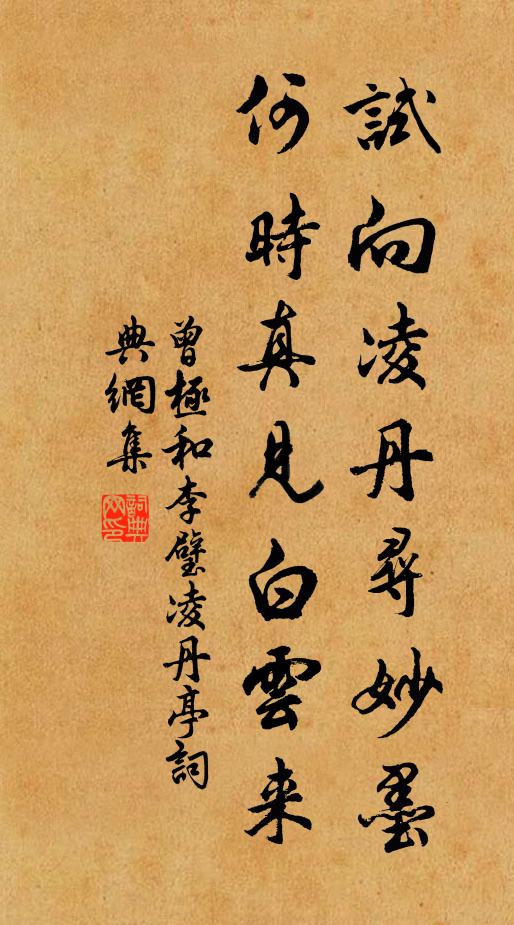 試向凌丹尋妙墨
何時真見白雲来
曾極和李璧凌丹亭詞
典網集
詞典
網印